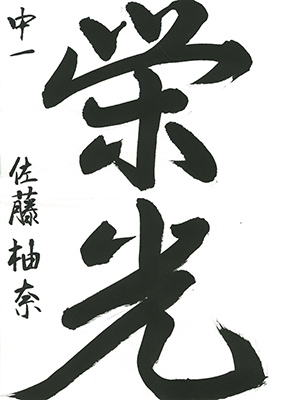 栄光
中一 佐藤柚奈